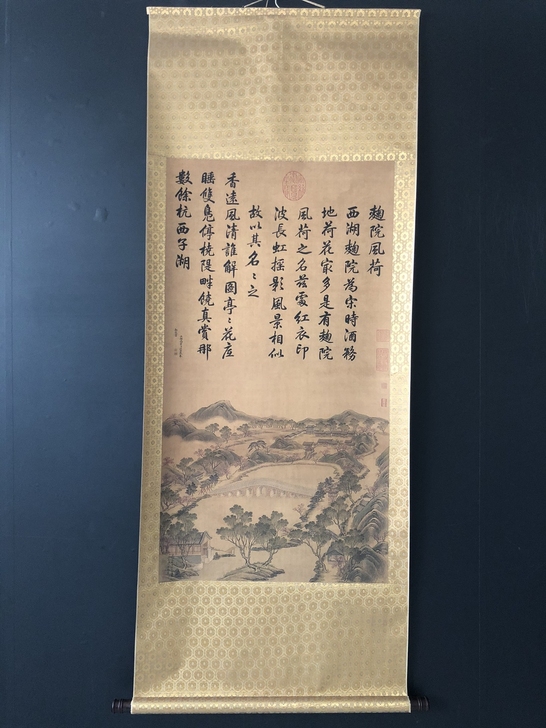 麹院風荷
西湖麹院為宋時酒務
地荷花㝡多是有麹院
風荷之名茲處紅衣印
波長虹搖影風景相似
故以其名〻之
香遠風清誰解圖亭〻花底
睡雙鳧停橈隄畔饒真賞那
數餘杭西子湖